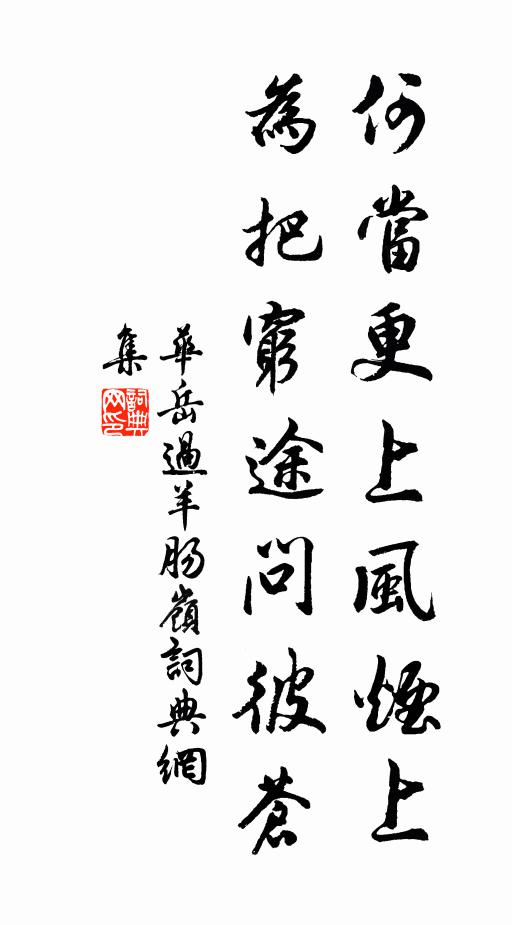 何當更上風煙上
為把窮途問彼蒼
華岳過羊腸嶺詞典網
集
詞典
网印